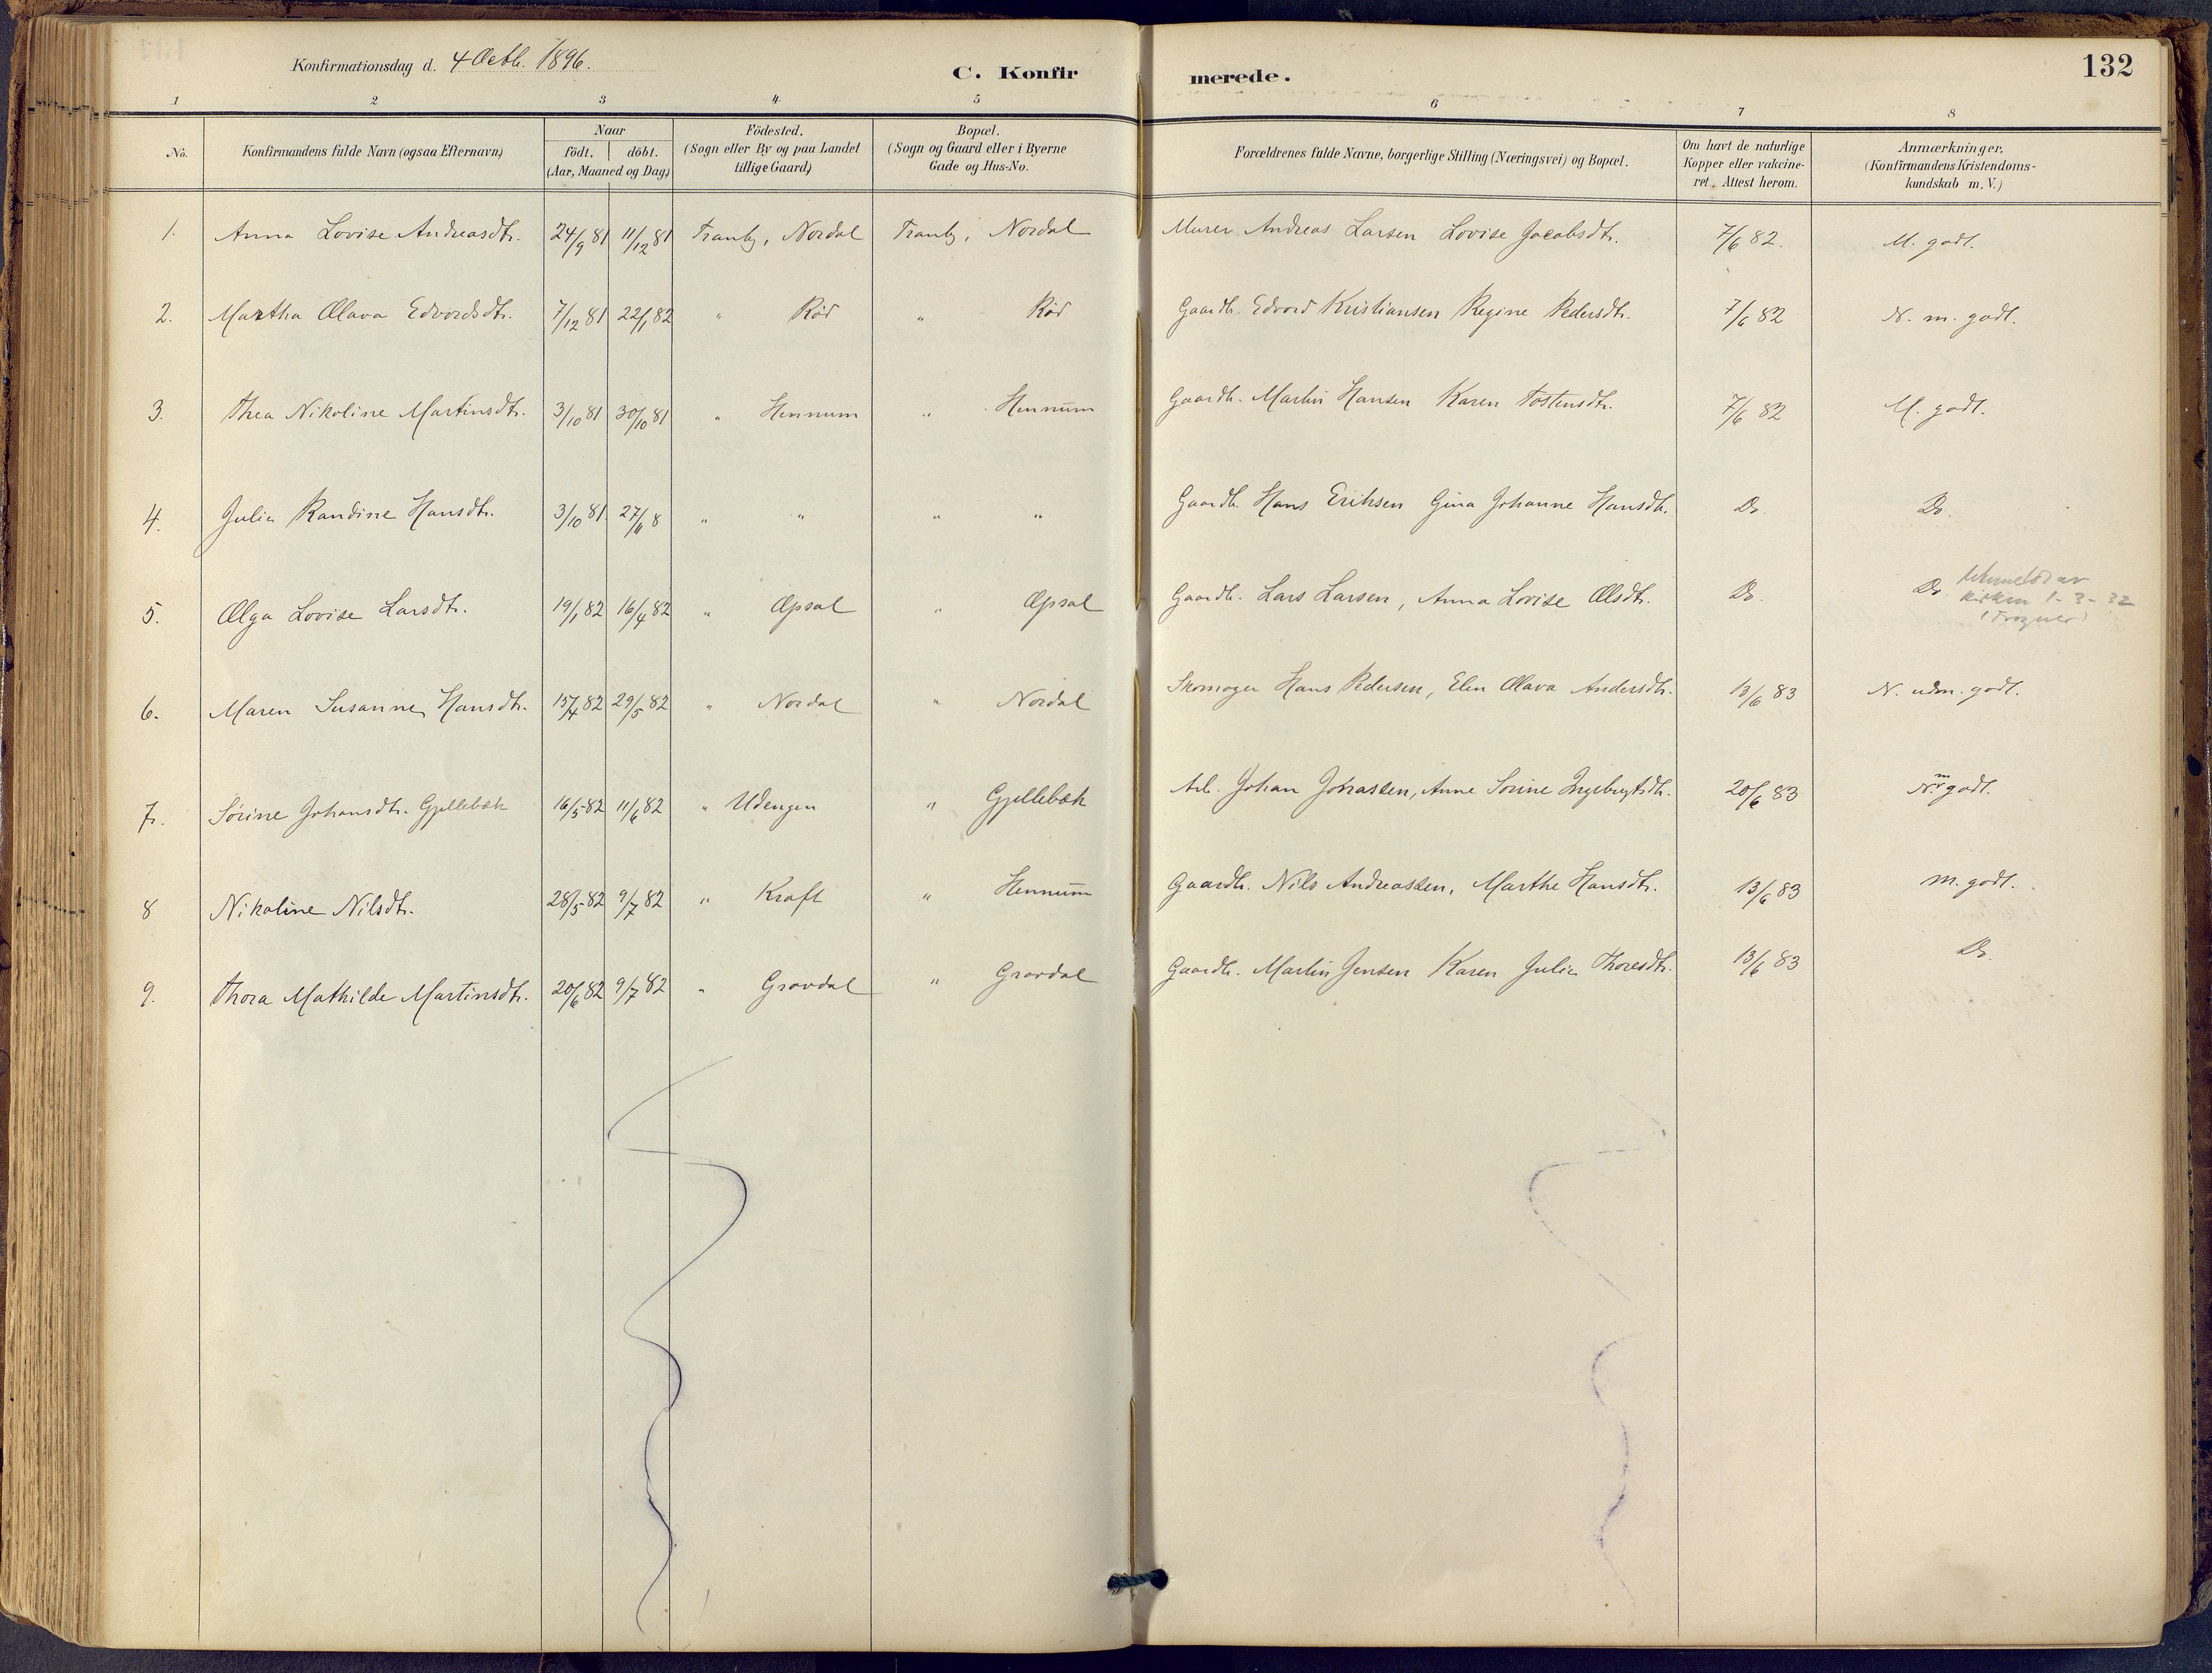 Konfirmationsdag d. 4 Octb. 1896.
C. Konfirmerede.
132
1 2 3 4 5 6 7 8
No.
Konfirmandens fulde Navn (ogsaa Efternavn)
Naar
födt. döbt.
(Aar, Maaned og Dag)
Födested.
(Sogn eller By og paa Landet
tillige Gaard)
Bopæl.
(Sogn og Gaard eller i Byerne
Gade og Hus-No.
Forældrenes fulde Navne, borgerlige Stilling (Næringsvei) og Bopæl.
Om havt de naturlige
Kopper eller vakcine-
ret. Attest herom.
Anmærkninger.
(Konfirmandens Kristendoms-
kundskab m. V.)
1. Anna Lovise Andreasdtr. 24/9 81 11/12 81 Tranby, Nordal Tranby, Nordal Murer Andreas Larsen Lovise Jacobsdtr. 7/6 82. M. godt.
2. Martha Olava Edvordsdtr. 7/12 81 22/1 82 " Rød " Rød Gaardb. Edvord Kristiansen Regine Pedersdtr. 7/6 82 N. m. godt.
3. Thea Nikoline Martinsdtr. 3/10 81 30/10 81 " Hennum " Hennum Gaardb. Martin Hansen Karen Tostensdtr. 7/6 82 M. godt.
4. Julie Randine Hansdtr. 3/10 81 27/11 8 " " " " Gaardb. Hans Eriksen Gina Johanne Hansdtr. Do. Do.
5. Olga Lovise Larsdtr. 19/1 82 16/4 82 " Opsal " Opsal Gaardb. Lars Larsen, Anna Lovise Olsdtr. Do. Do. Utmeldt av
kirken 1-3-32
(Frogner)
6. Maren Susanne Hansdtr. 15/4 82 29/5 82 " Nordal " Nordal Skomager Hans Pedersen, Elen Olava Andersdtr. 13/6 83 N. udm. godt.
7. Sørine Johansdtr. Gjellebæk 16/5 82 11/6 82 " Udengen " Gjellebæk Arb. Johan Jonassen, Anne Sørine Ingebrigtsdtr. 20/6 83 N. m godt.
8 Nikoline Nilsdtr. 28/5 82 9/7 82 " Kraft " Hennum Gaardb. Nils Andreassen, Marthe Hansdtr. 13/6 83 m. godt.
9. Thora Mathilde Martinsdtr. 20/6 82 9/7 82 " Gravdal " Gravdal Gaardb. Martin Jensen Karen Julie Thoresdtr. 13/6 83 Do.